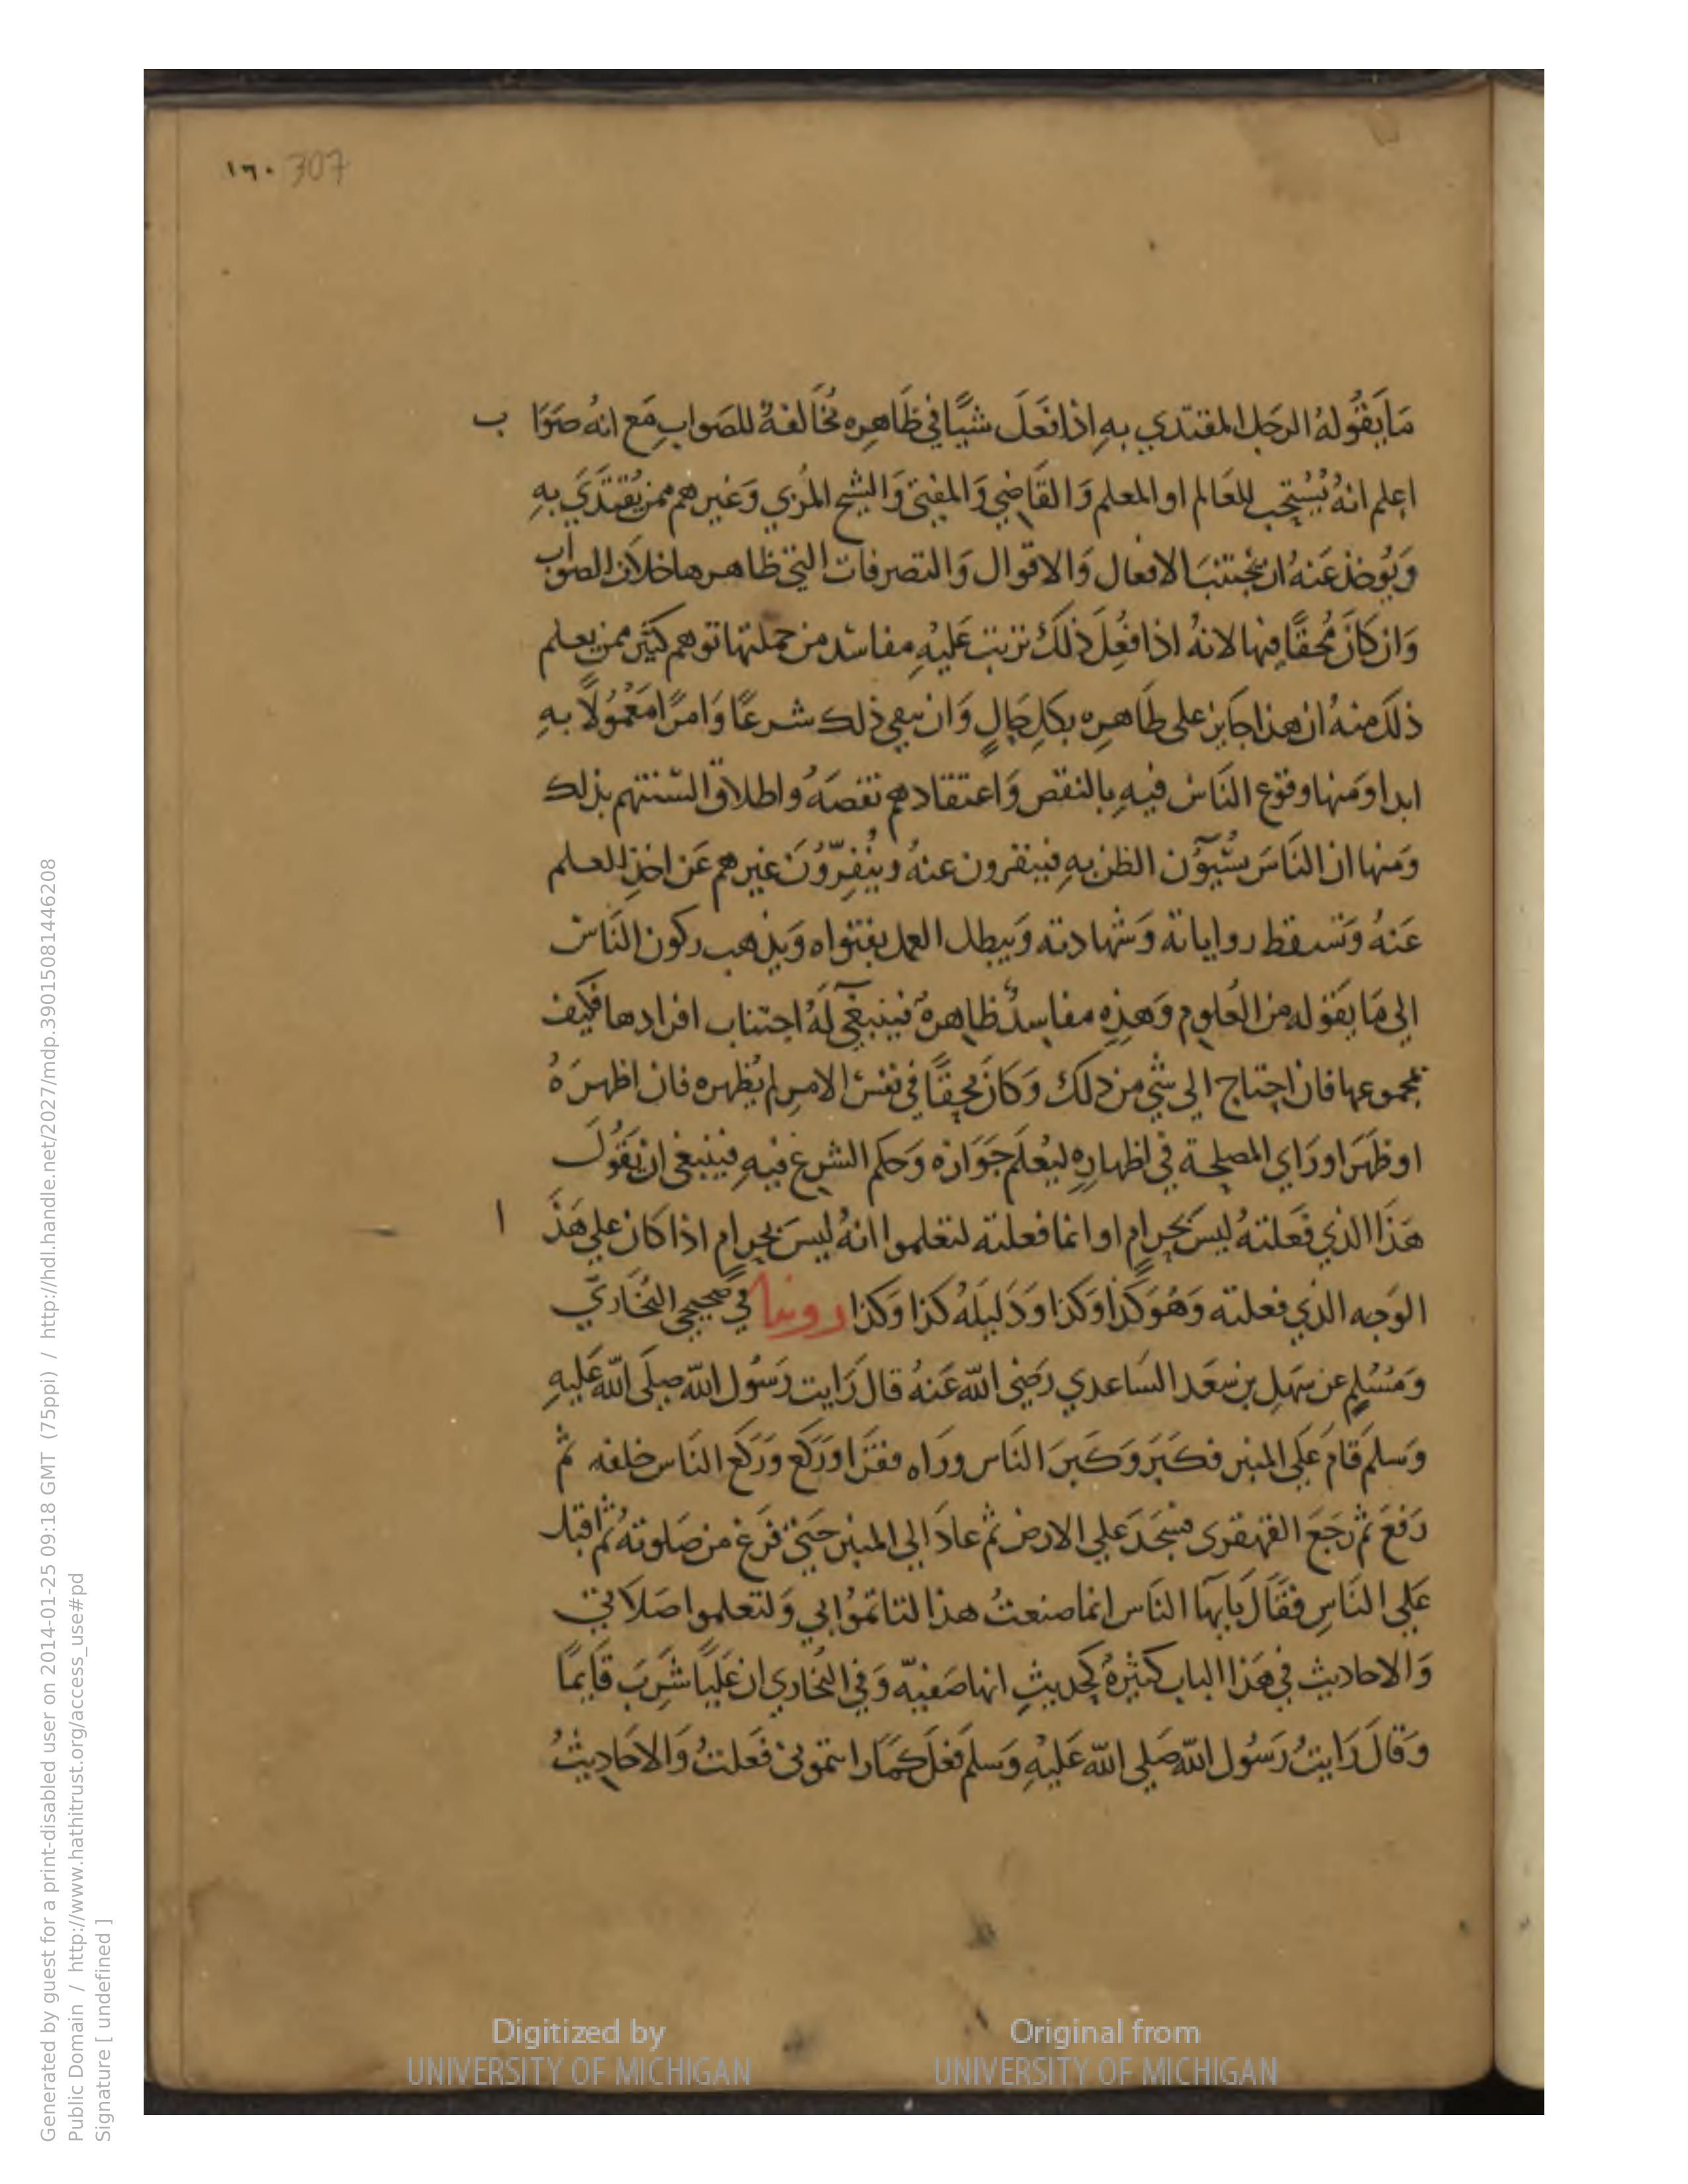 ١٦٠ 307
مَا يَقُولهُ الرجَل المقتدي بهِ اِذا فعَلَ شيًا في ظَاهِره مُخَالفةٌ للصَواب مَع انهُ صَوَا ب
اعلم انهُ يُسْتحب للعَالم او المعلم وَالقَاضِي وَالمفتى وَالشيخ المرَبي وَغيرهم ممن يُقتَدَي بهِ
وَيُوخذ عَنهُ ان يجْتنبَ الافعال وَالاقوال وَالتصرفات التي ظاهرها خلاف الصوَاب
وَان كَانَ مُحقًا فيها لانهُ اذا فعُلَ ذلَكَ ترتبَ عَليْهِ مفاسد من جملتها توهم كثير ممن يعلم
ذلَكَ منهُ ان هذا جَايز على ظَاهرِه بكل حَالٍ وَان يبقي ذلك شرعًا وَامرًا مَعْمُولًا بهِ
ابدا وَمنها وقوع النَاس فيهِ بالنقص وَاعتقادهم نقصَهُ واطلاق السنتهم بذلك
وَمنها ان النَاسَ يسُيؤُن الظن بهِ فينفرون عنهُ وينُفِرّوُنَ غيرهم عَن اخذ العلم
عَنهُ وَتسقط رواياته وَشهادته وَيبطل العمل بفتواه وَيذهب ركون النَاس
الي مَا يقوله من العُلوم وَهذهِ مفاسدُ ظاهرهٌ فينبغي لهُ اجتناب افرادها فكيف
بمجموعها فان احتاج الي شي من ذلك وَكانَ محقًا في نفس الامرِ لم يُظهره فان اظهرَهُ
او ظهَرَ او رَاي المصلحة في اظهارِه ليُعْلَم جَوَازه وَحكم الشرع فيهِ فينبغي ان يَقوُلَ
هَذَا الذي فَعلتهُ ليسَ بحرامٍ او انما فعلته لتعلموا انهُ ليسَ بحرامٍ اذا كان علي هَذَ ا
الوَجه الذي فعلته وَهُوَ كَذا وَكذا وَدَليلَهُ كذا وَكذا روينا في صَحيحي البُخَاريّ
وَمسُلمٍ عن سَهلِ بن سَعَد السَاعدي رَضيَ الله عَنهُ قالَ رَايت رَسُول الله صلَى الله عَليهِ
وَسلمَ قامَ عَلَي المنبر فكَبَرَ وَكَبرَ النَاس ورَاه فقرَا وَرَكَعَ وَرَكعَ النَاس خلفه ثم
رَفعَ ثم رَجَعَ القهقري فسَجَدَ علي الارض ثم عادَ الي المنبر حَتي فرَغ من صَلوتهُ ثم اقبل
عَلي النَاسِ فقَالَ يَا يها النَاس انما صنعتُ هذا لتاتموُا بي وَلتعلموا صَلاَتي
وَالاحاديث في هَذا الباب كثيرةٌ كحَديثِ انها صَفيّه وَفي البُخاري ان عَليًا شَرِبَ قَايمًا
وَقالَ رَايتُ رَسُول الله صَلي الله عَليْهِ وَسلمَ فعَلَ كمَا رايتموني فعَلتُ وَالاحَاديثُ
Digitized by
UNIVERSITY OF MICHIGAN
Original from
UNIVERSITY OF MICHIGAN
Generated by guest for a print-disabled user on 2014-01-25 09:18 GMT (75ppi) / http://hdl.handle.net/2027/mdp.39015081446208
Public Domain / http://www.hathitrust.org/access_use#pd
Signature [ undefined ]